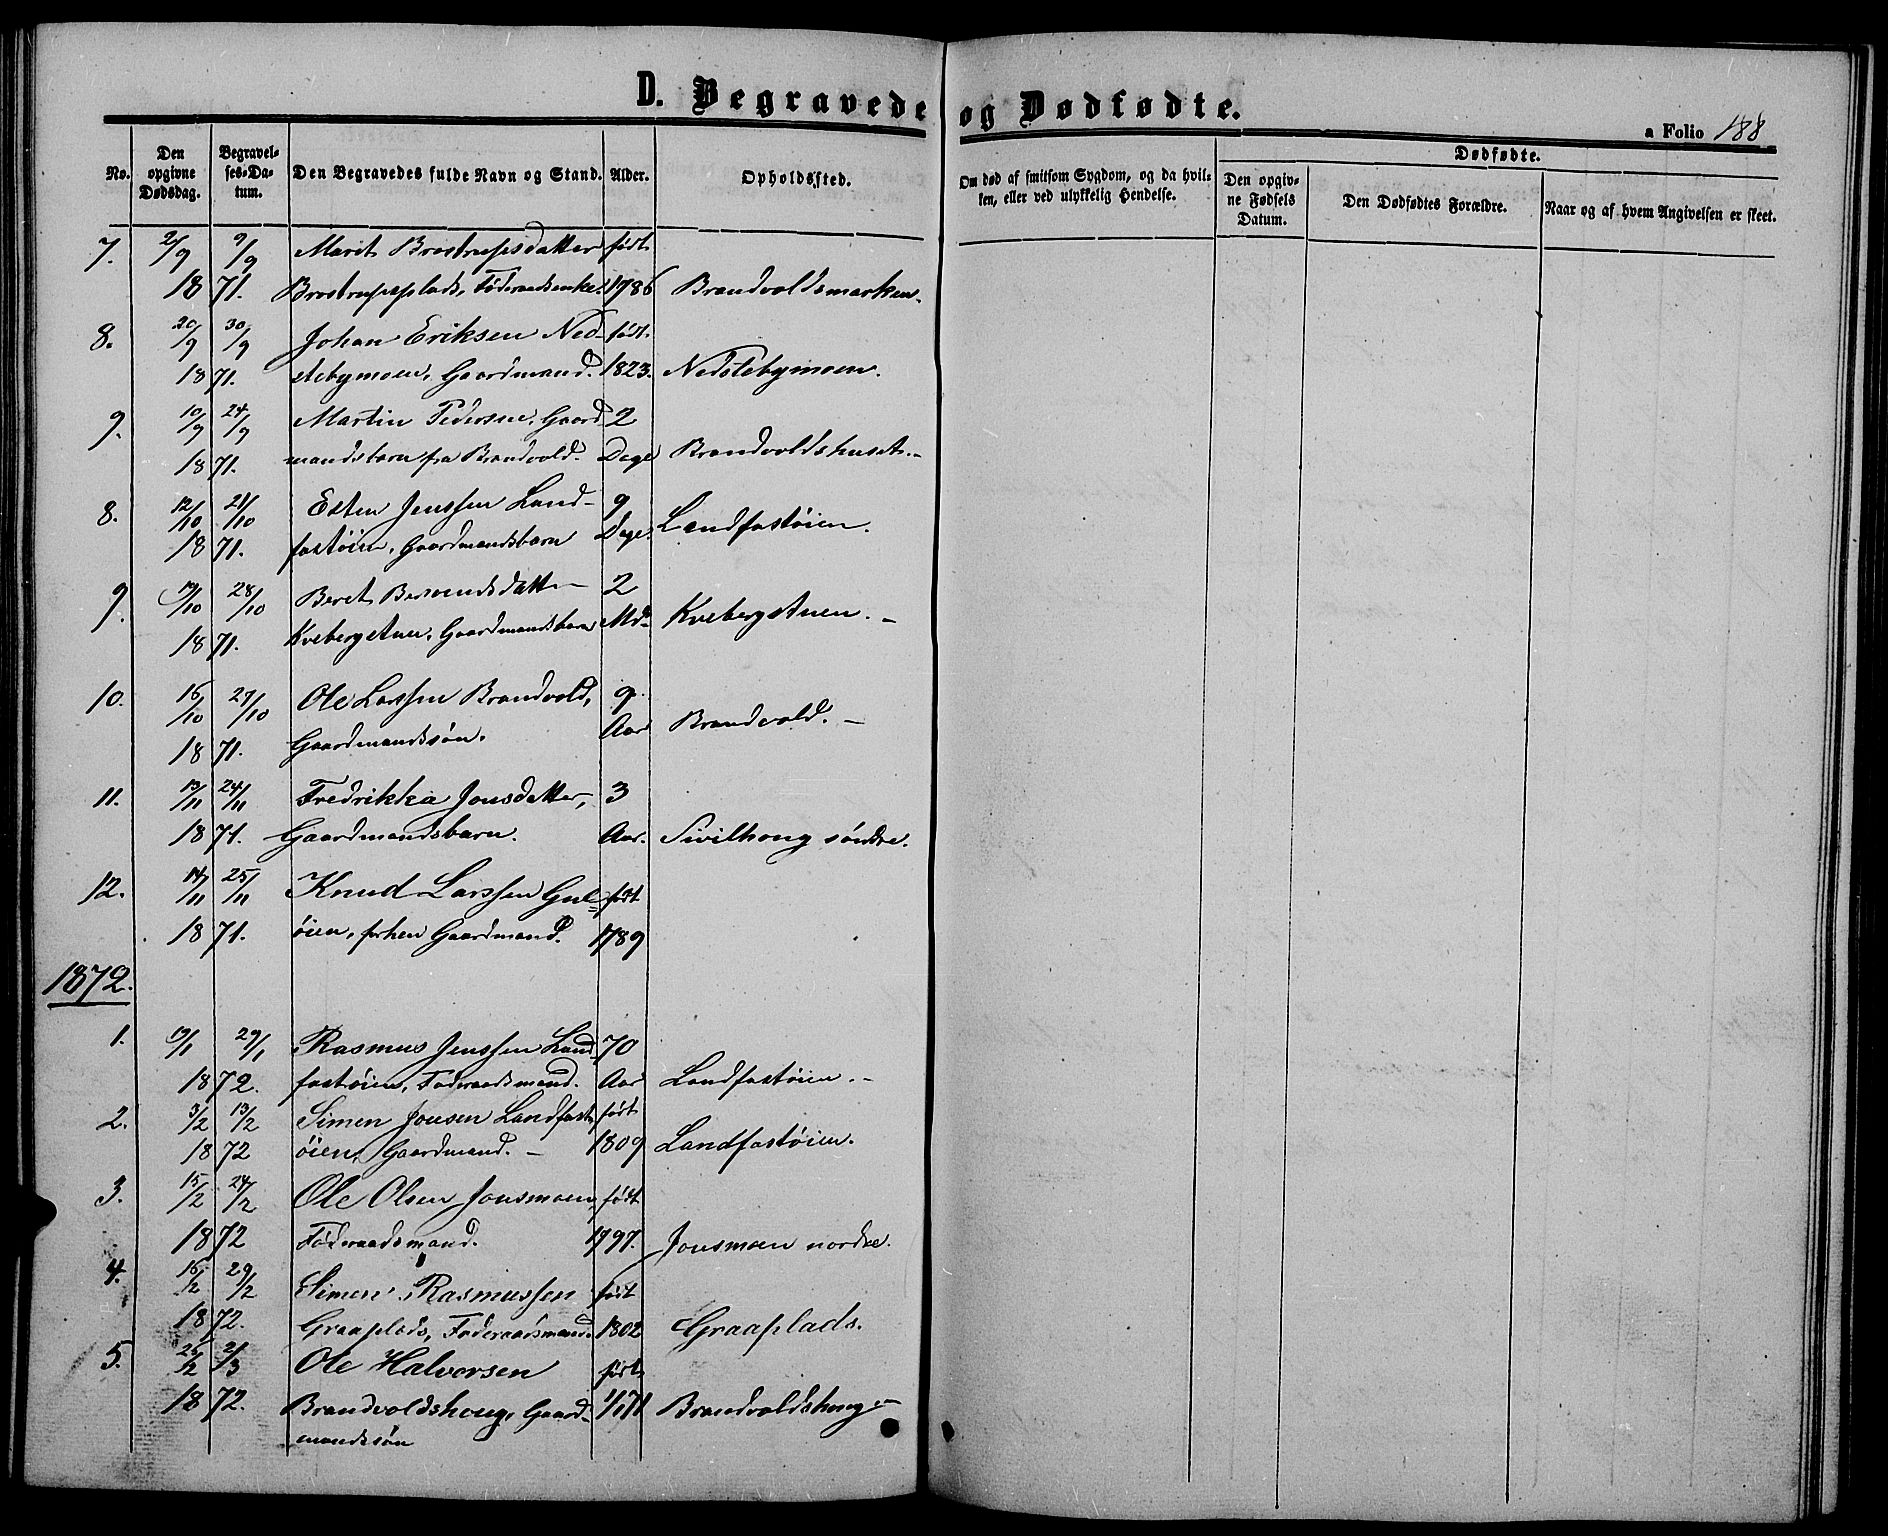 D. Begravede og Dødfødte.
a Folio 188
No.
Den opgivne Dødsdag.
Begravelses-Datum.
Den Begravedes fulde Navn og Stand.
Alder.
Opholdssted.
Om død af smitsom Sygdom, og da hvilken, eller ved ulykkelig Hendelse.
Dødfødte.
Den opgivne Fødsels Datum.
Den Dødfødtes Forældre.
Naar og af hvem Angivelsen er skeet.
7. 2/9 9/9 Marit Brostrupsdatter født
1871. Brostrupsplads, Føderaadsenke. 1786 Brandvoldsmarken.
8. 20/9 30/9 Johan Eriksen Ned- født
1871. stebymoen, Gaardmand. 1823. Nedstebymoen.
9. 10/9 24/9 Martin Pedersen, Gaard 2
1871. mandsbarn fra Brandvold. Dage Brandvoldshuset. -
8. 12/10 21/10 Esten Jenssen Land- 9
1871. fastøien, Gaardmandsbarn Dage. Landfastøien.
9. 19/10 28/10 Beret Berventsdatt- 2
1871. Kvebergstuen, Gaardmandsbarn Md. Kvebergstuen. -
10. 16/10 27/10 Ole Larssen Brandvold, 9
1871. Gaardmandssøn. Aar Brandvold. -
11. 13/11 24/11 Fredrikka Jonsdatter, 3
1871. Gaardmandsbarn. Aar. Sivilhoug søndre.
12. 14/11 25/11 Knud Larssen Gul= født
1871. øien, forhen Gaardmand. 1789
1872.
1. 19/1 29/1 Rasmus Jenssen Land- 70
1872. fastøien, Føderaadsmand. Aar Landfastøien. -
2. 3/2 13/2 Simen Jonsen Landfast- født
1872 øien, Gaardmand. - 1809 Landfastøien.
3. 15/2 24/2 Ole Olsen Jonsmoen, født
1872 Føderaadsmand. 1797. Jonsmoen nordre.
4. 16/2 29/2 Simen Rasmussen født
1872. Graaplads, Føderaadsmand. 1802 Graaplads.
5. 25/2 2/3 Ole Halvorsen født
1872. Brandvoldshoug, Gaard- Brandvoldshoug -
mandssøn